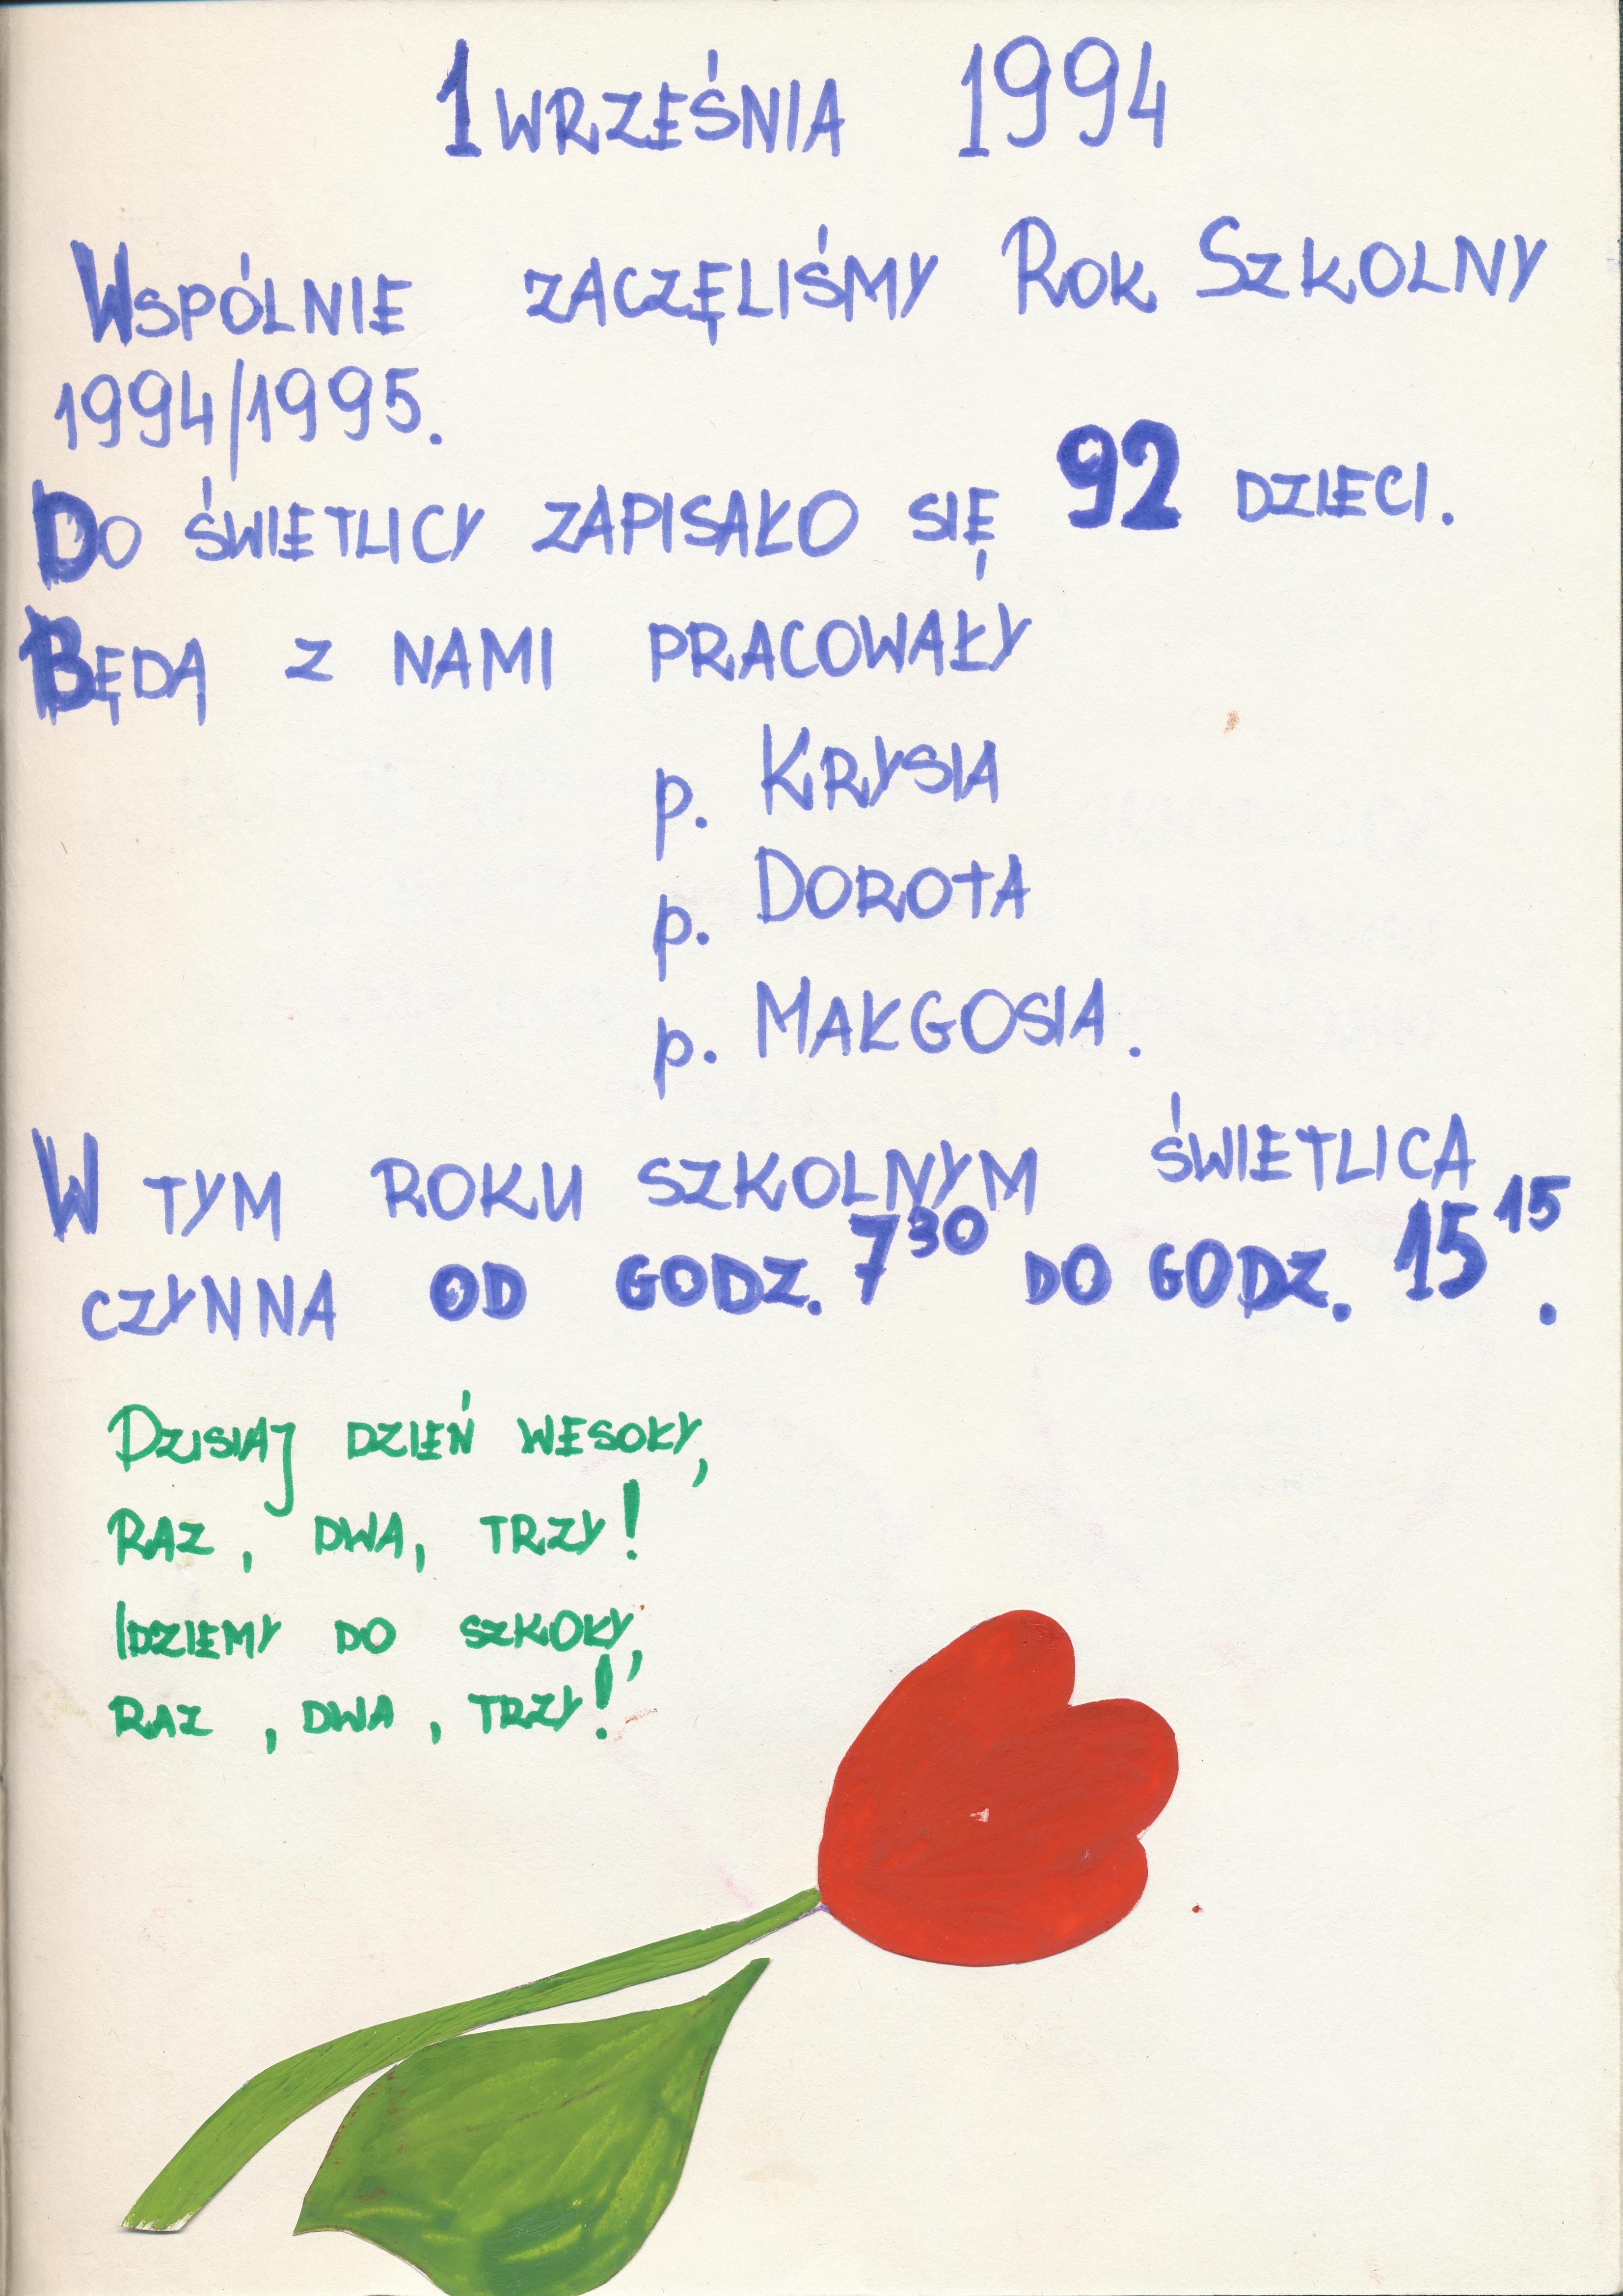 1 WRZEŚNIA 1994
WSPÓLNIE ZACZĘLIŚMY ROK SZKOLNY
1994/1995.
DO ŚWIETLICY ZAPISAŁO SIĘ 92 DZIECI.
BĘDĄ Z NAMI PRACOWAŁY
p. KRYSIA
p. DOROTA
p. MAŁGOSIA.
W TYM ROKU SZKOLNYM ŚWIETLICA
CZYNNA OD GODZ. 7³⁰ DO GODZ. 15¹⁵.
DZISIAJ DZIEŃ WESOŁY,
RAZ, DWA, TRZY!
IDZIEMY DO SZKOŁY,
RAZ, DWA, TRZY!